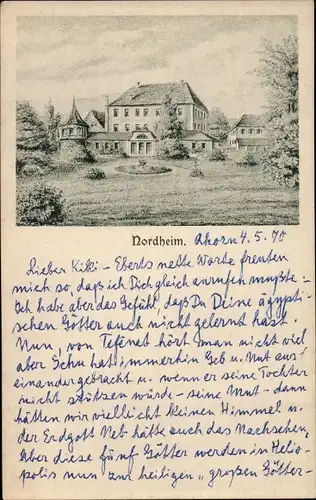 Nordheim. Ahorn 4.5.70
Lieber Kiki – Eberts nette Worte freuten
mich so, daß ich Dich gleich anrufen mußte –
Ich habe aber das Gefühl daß Du Deine ägypti-
schen Götter auch nicht gelernt hast.
Nun, von Tefenet hört man nicht viel
aber Schu hat immerhin Geb u. Nut aus
einandergebracht u. wenn er seine Tochter
nicht stützen würde – seine Nut – dann
hätten wir vielleicht keinen Himmel u.
der Erdgott Neb hätte auch das Nachsehen,
Aber diese fünf Götter werden in Helio-
polis nun zur heiligen „großen Götter-